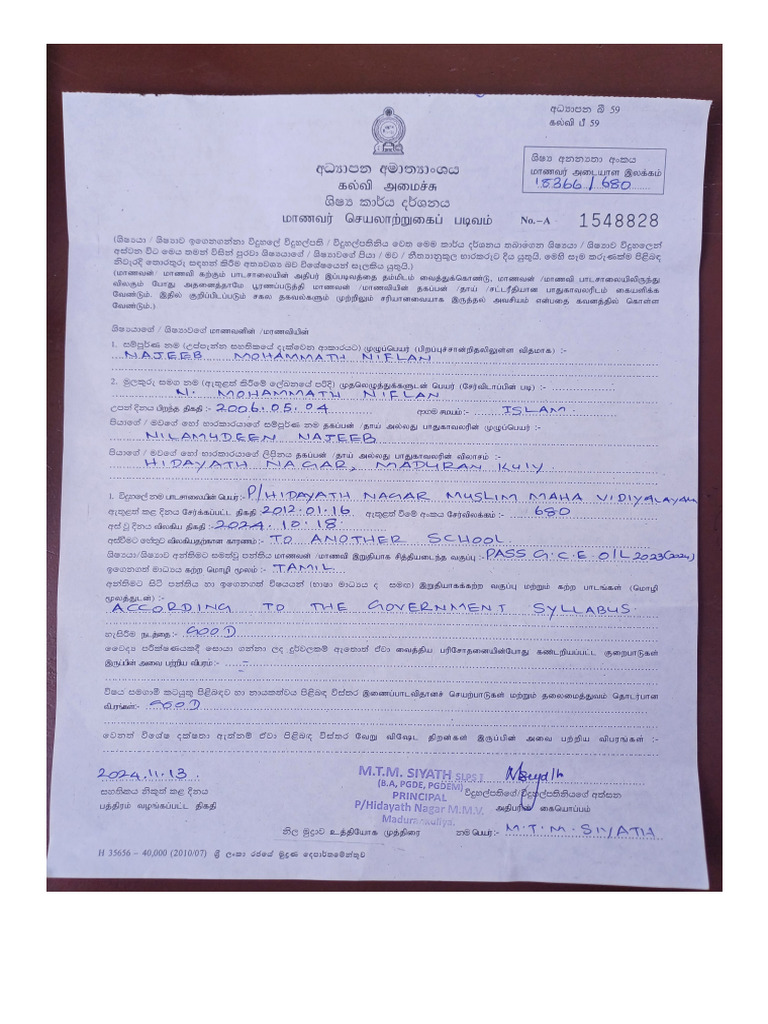 අධ්‍යාපන බී 59
கல்வி பீ 59
අධ්‍යාපන අමාත්‍යාංශය
கல்வி அமைச்சு
ශිෂ්‍ය කාර්ය දර්ශනය
மாணவர் செயலாற்றுகைப் படிவம்
ශිෂ්‍ය අනන්‍යතා අංකය
மாணவர் அடையாள இலக்கம்
18366/680
No.–A 1548828
(ශිෂ්‍යයා / ශිෂ්‍යාව ඉගෙනගන්නා විදුහලේ විදුහල්පති / විදුහල්පතිනිය වෙත මෙම කාර්ය දර්ශනය තබාගෙන ශිෂ්‍යයා / ශිෂ්‍යාව විදුහලෙන්
අස්වන විට මෙය තමන් විසින් පුරවා ශිෂ්‍යයාගේ / ශිෂ්‍යාවගේ පියා / මව / නීත්‍යානුකූල භාරකරුට දිය යුතුයි. මෙහි සෑම කරුණක්ම පිළිබඳ
නිවැරදි තොරතුරු සඳහන් කිරීම අත්‍යවශ්‍ය බව විශේෂයෙන් සැලකිය යුතුයි.)
(மாணவன்/ மாணவி கற்கும் பாடசாலையின் அதிபர் இப்படிவத்தை தம்மிடம் வைத்துக்கொண்டு, மாணவன் /மாணவி பாடசாலையிலிருந்து
விலகும் போது அதனைத்தாமே பூரணப்படுத்தி மாணவன் /மாணவியின் தகப்பன் /தாய் /சட்டரீதியான பாதுகாவலரிடம் கையளிக்க
வேண்டும். இதில் குறிப்பிடப்படும் சகல தகவல்களும் முற்றிலும் சரியானவையாக இருத்தல் அவசியம் என்பதை கவனத்தில் கொள்ள
வேண்டும்.)
ශිෂ්‍යයාගේ / ශිෂ්‍යාවගේ மாணவனின் /மாணவியின்
1. සම්පූර්ණ නම (උප්පැන්න සහතිකයේ දැක්වෙන ආකාරයට) முழுப்பெயர் (பிறப்புச்சான்றிதழிலுள்ள விதமாக) :-
NAJEEB MOHAMMATH NIFLAN
2. මුලකුරු සමග නම (ඇතුළත් කිරීමේ ලේඛනයේ පරිදි) முதலெழுத்துக்களுடன் பெயர் (சேர்விடாப்பின் படி) :
N. MOHAMMATH NIFLAN
උපන් දිනය பிறந்த திகதி :- 2006.05.04 ආගම சமயம் :- ISLAM.
පියාගේ / මවගේ හෝ භාරකාරයාගේ සම්පූර්ණ නම தகப்பன் /தாய் அல்லது பாதுகாவலரின் முழுப்பெயர் :-
NILAMUDEEN NAJEEB
පියාගේ / මවගේ හෝ භාරකාරයාගේ ලිපිනය தகப்பன் /தாய் அல்லது பாதுகாவலரின் விலாசம் :-
HIDAYATH NAGAR, MADURAN KULY
1. විදුහලේ නම பாடசாலையின் பெயர் :- P/HIDAYATH NAGAR MUSLIM MAHA VIDIYALAYAM
ඇතුළත් කළ දිනය சேர்க்கப்பட்ட திகதி 2012.01.16 ඇතුළත් වීමේ අංකය சேர்விலக்கம் :- 680
අස් වූ දිනය விலகிய திகதி :- 2024.10.18.
අස්වීමට හේතුව விலகியதற்கான காரணம் :- TO ANOTHER SCHOOL
ශිෂ්‍යයා/ශිෂ්‍යාව අන්තිමට සමත්වූ පන්තිය மாணவன் /மாணவி இறுதியாக சித்தியடைந்த வகுப்பு :- PASS G.C.E O/L 2023(2024)
ඉගෙනගත් මාධ්‍යය கற்ற மொழி மூலம் :- TAMIL
අන්තිමට සිටි පන්තිය හා ඉගෙනගත් විෂයයන් (භාෂා මාධ්‍යය ද සමග) இறுதியாகக்கற்ற வகுப்பு மற்றும் கற்ற பாடங்கள் (மொழி
மூலத்துடன்) :-
ACCORDING TO THE GOVERNMENT SYLLABUS.
හැසිරීම நடத்தை :- GOOD
වෛද්‍ය පරීක්ෂණයකදී සොයා ගන්නා ලද දුර්වලකම් ඇතොත් ඒවා வைத்திய பரிசோதனையின்போது கண்டறியப்பட்ட குறைபாடுகள்
இருப்பின் அவை பற்றிய விபரம் :- -
විෂය සමගාමී කටයුතු පිළිබඳව හා නායකත්වය පිළිබඳ විස්තර இணைப்பாடவிதானச் செயற்பாடுகள் மற்றும் தலைமைத்துவம் தொடர்பான
விபரங்கள் :- GOOD
වෙනත් විශේෂ දක්ෂතා ඇත්නම් ඒවා පිළිබඳ විස්තර வேறு விஷேட திறன்கள் இருப்பின் அவை பற்றிய விபரங்கள் :-
2024.11.13.
සහතිකය නිකුත් කළ දිනය
பத்திரம் வழங்கப்பட்ட திகதி
M.T.M. SIYATH SLPS I
(B.A, PGDE, PGDEM)
PRINCIPAL
P/Hidayath Nagar M.M.V.
Madurankuliya.
විදුහල්පතිගේ/විදුහල්පතිනියගේ අත්සන
அதிபரின் கையொப்பம்
නිල මුද්‍රාව உத்தியோக முத்திரை නම பெயர் :- M.T.M. SIYATH
H 35656 – 40,000 (2010/07) ශ්‍රී ලංකා රජයේ මුද්‍රණ දෙපාර්තමේන්තුව